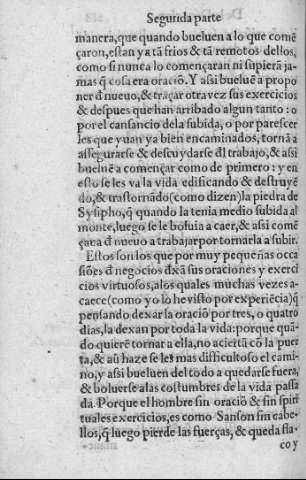 Segunda parte
manera, que quando bueluen a lo que comẽ
çaron, estan ya tã frios & tã remotos dellos,
como si nunca lo començaran ni supierã ja-
mas q̃ cosa era oraciõ. Y assi bueluẽ a propo
ner d̃ nueuo, & traçar otra vez sus exercicios
& despues que han arribado algun tanto: o
por el cansancio dela subida, o por parescer
les que yuan ya bien encaminados, tornã a
assegurarse & descuydarse d̃l trabajo, & assi
bueluẽ a començar como de primero: y en
esto se les va la vida edificando & destruyẽ
do, & trastornãdo (como dizen) la piedra de
Sysipho, q̃ quando la tenia medio subida al
monte, luego se le boluia a caer, & assi comẽ
çaua d̃ nueuo a trabajar por tornarla a subir.
Estos son los que por muy pequeñas occa
siões d̃ negocios dxã sus oraciones y exerci
cios virtuosos, alos quales muchas vezes a-
caece (como yo lo he visto por experiẽcia) q̃
pensando dexar la oraciõ por tres, o quatro
dias, la dexan por toda la vida: porque quã-
do quierẽ tornar a ella, no aciertã cõ la puer
ta, & aũ haze se les mas difficultoso el cami-
no, y assi bueluen del todo a quedarse fuera,
& boluerse alas costumbres de la vida passa
da. Porque el hombre sin oraciõ & sin spiri
tuales exercicios, es como Sanson sin cabe-
llos, q̃ luego pierde las fuerças, & queda fla-
co y